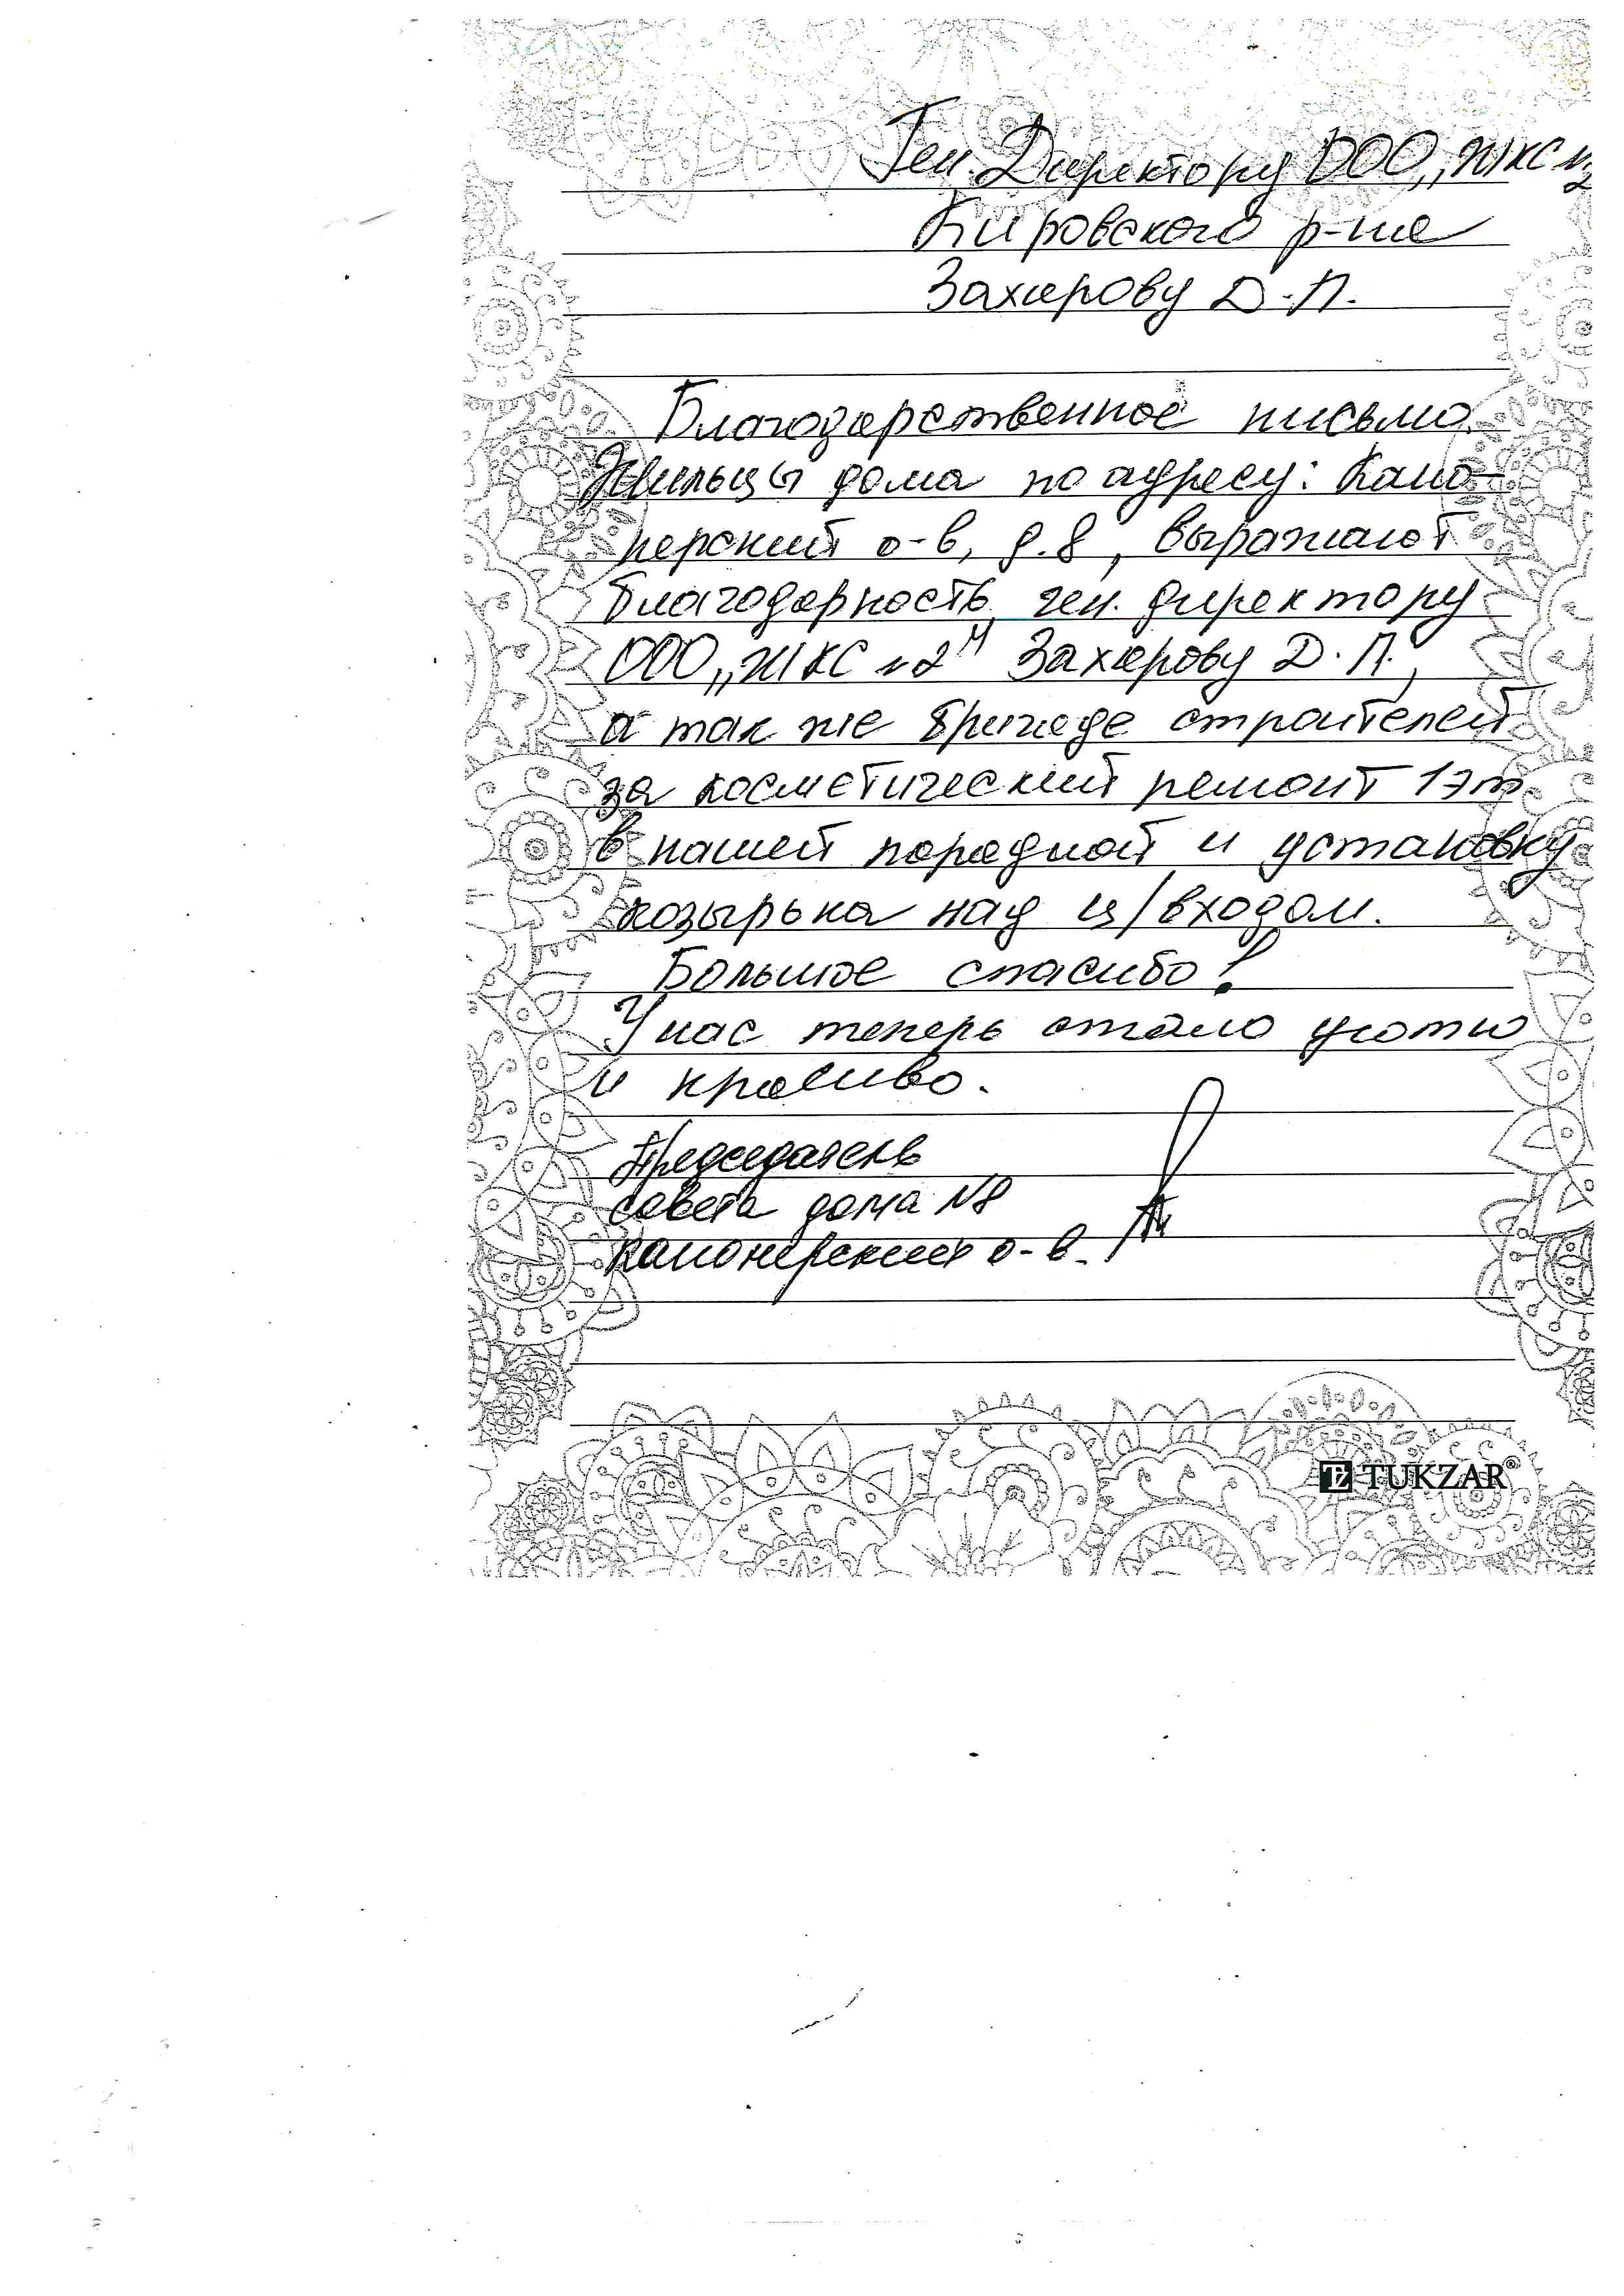 Ген. Директору ООО „ЖКС №2
Кировского р-на
Захарову Д.П.
Благодарственное письмо.
Жильцы дома по адресу: Кано-
нерский о-в, д.8, выражают
благодарность ген. директору
ООО „ЖКС №2" Захарову Д.П.,
а так же бригаде строителей
за косметический ремонт 1 эт.
в нашей парадной и установку
козырька над ц/входом.
Большое спасибо!
У нас теперь стало уютно
и красиво.
Председатель
совета дома №8
Канонерский о-в.
TUKZAR®